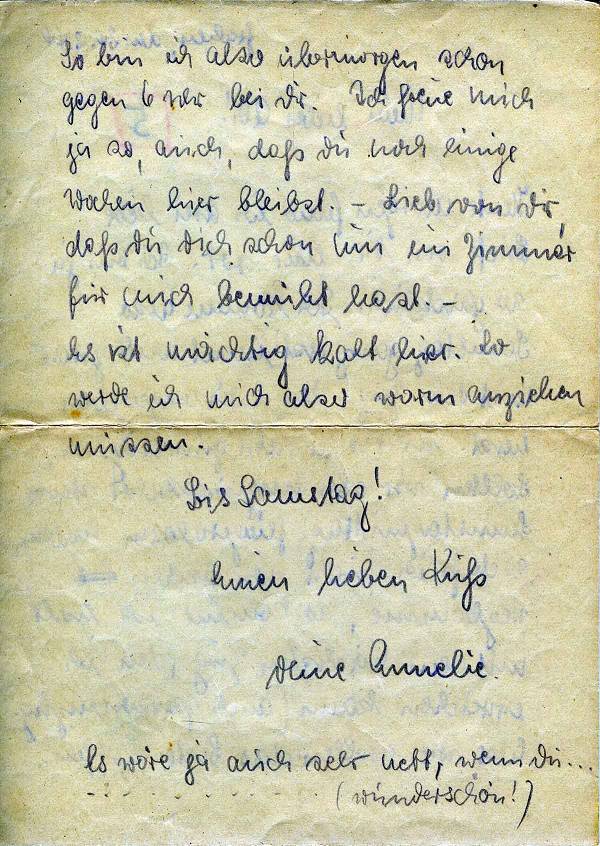 So bin ich also übermorgen schon
gegen 6 Uhr bei Dir. Ich freue mich
ja so, auch, daß du noch einige
Wochen hier bleibst. – Lieb von Dir,
daß du Dich schon um ein Zimmer
für mich bemüht hast. –
Es ist mächtig kalt hier. So
werde ich mich also warm anziehen
müssen.
Bis Samstag!
Einen lieben Kuß
deine Annelie.
Es wäre ja auch sehr nett, wenn du...
(wunderschön!)